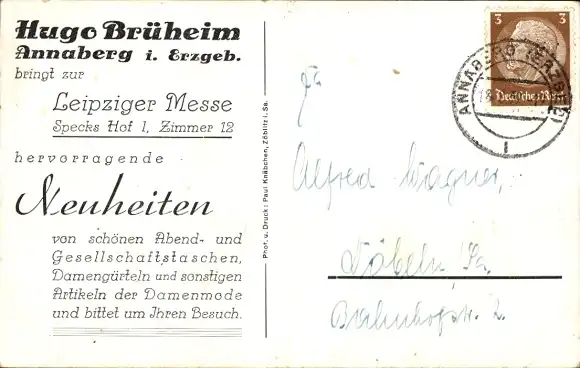 Hugo Brüheim
Annaberg i. Erzgeb.
bringt zur
Leipziger Messe
Specks Hof 1, Zimmer 12
hervorragende
Neuheiten
von schönen Abend- und
Gesellschaftstaschen,
Damengürteln und sonstigen
Artikeln der Damenmode
und bittet um Ihren Besuch.
Phot. u. Druck: Paul Knäbchen, Zöblitz i. Sa.
3 3
Deutsches Reich
ANNABERG (ERZGEB)
18
1
Fa
Alfred Wagner,
Döbeln/Sa.
Bahnhofstr. 2.